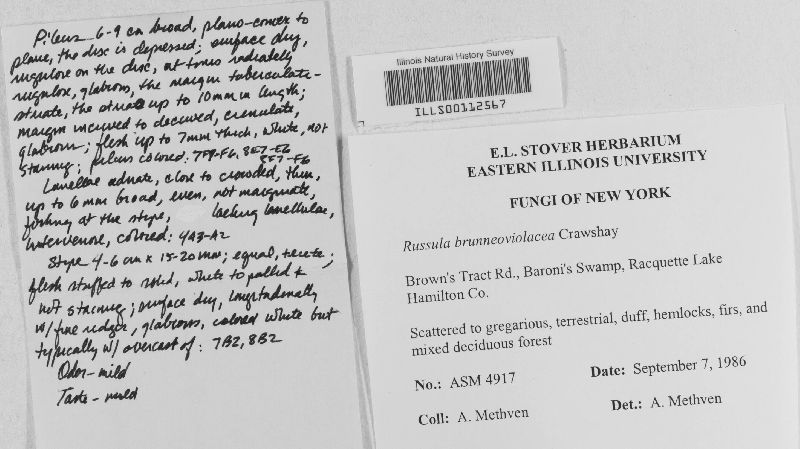 Pileus 6-9 cm broad, plano-convex to
plane, the disc is depressed; surface dry,
rugulose on the disc, at times radiately
rugulose, glabrous, the margin tuberculate-
striate, the striae up to 10mm in length;
margin incurved to decurved, crenulate,
glabrous; flesh up to 7mm thick, white, not
staining; pileus colored: 7F9-F6, 8E7-E6
8F7-F6
Lamellae adnate, close to crowded, thin,
up to 6mm broad, even, not marginate,
forking at the stipe, lacking lamellulae,
intervenose, colored: 4A3-A2
Stipe 4-6 cm x 15-20mm; equal, terete;
flesh stuffed to solid, white to pallid &
not staining; surface dry, longitudinally
w/ fine ridges, glabrous, colored white but
typically w/ overcast of: 7B2, 8B2
Odor - mild
Taste - mild
Illinois Natural History Survey
ILLS00112567
E.L. STOVER HERBARIUM
EASTERN ILLINOIS UNIVERSITY
FUNGI OF NEW YORK
Russula brunneoviolacea Crawshay
Brown's Tract Rd., Baroni's Swamp, Racquette Lake
Hamilton Co.
Scattered to gregarious, terrestrial, duff, hemlocks, firs, and
mixed deciduous forest
No.: ASM 4917 Date: September 7, 1986
Coll: A. Methven Det.: A. Methven